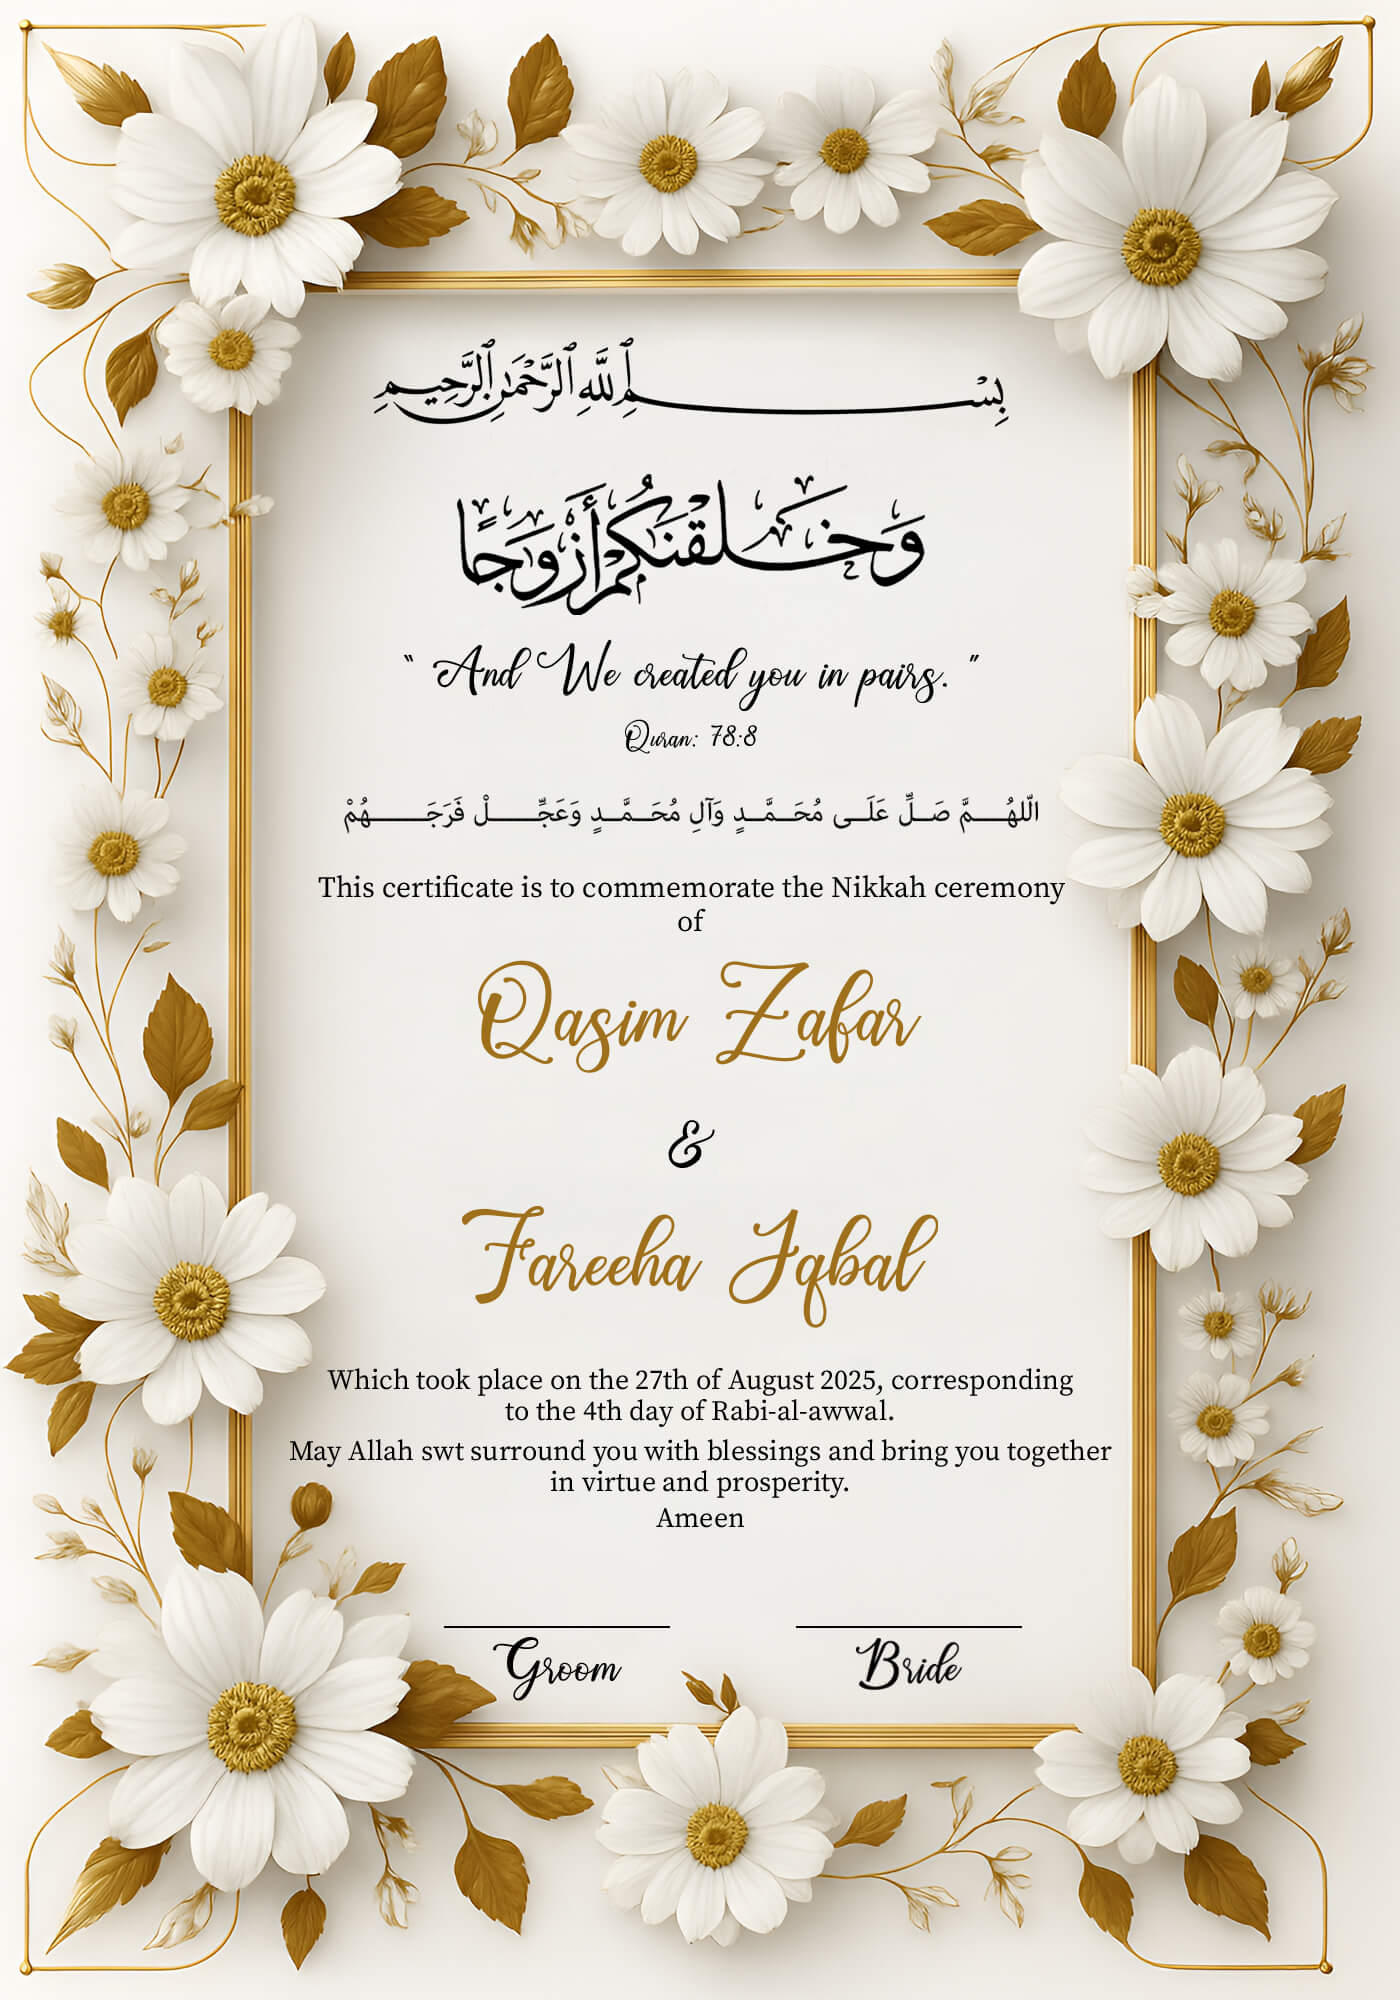 بِسْــــــمِ ٱللَّهِ ٱلرَّحْمَٰنِ ٱلرَّحِيمِ
وَخَلَقْنَكُمْ أَزْوَجًا
“ And We created you in pairs. ”
Quran: 78:8
الّلهُــــمَّ صَــلِّ عَلَــى مُحَــمَّــدٍ وَآلِ مُحَــمَّــدٍ وَعَجِّــــــلْ فَرَجَـــــــهُمْ
This certificate is to commemorate the Nikkah ceremony
of
Qasim Zafar
&
Fareeha Iqbal
Which took place on the 27th of August 2025, corresponding
to the 4th day of Rabi-al-awwal.
May Allah swt surround you with blessings and bring you together
in virtue and prosperity.
Ameen
Groom Bride